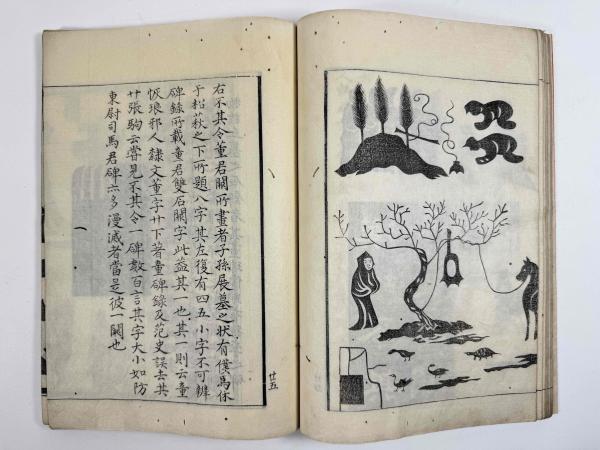 右不其令董君闕所畫者子孫展墓之狀有僕馬休
于松萩之下所題八字其左復有四五小字不可辨
碑錄所載董君雙石闕字此蓋其一也其一則云童
恢琅邪人隸文董字艹下著童碑錄及范史誤去其
艹張駒云嘗見不其令一碑數百言其字大小如防
東尉司馬君碑亦多漫滅者當是彼一闕也
廿五